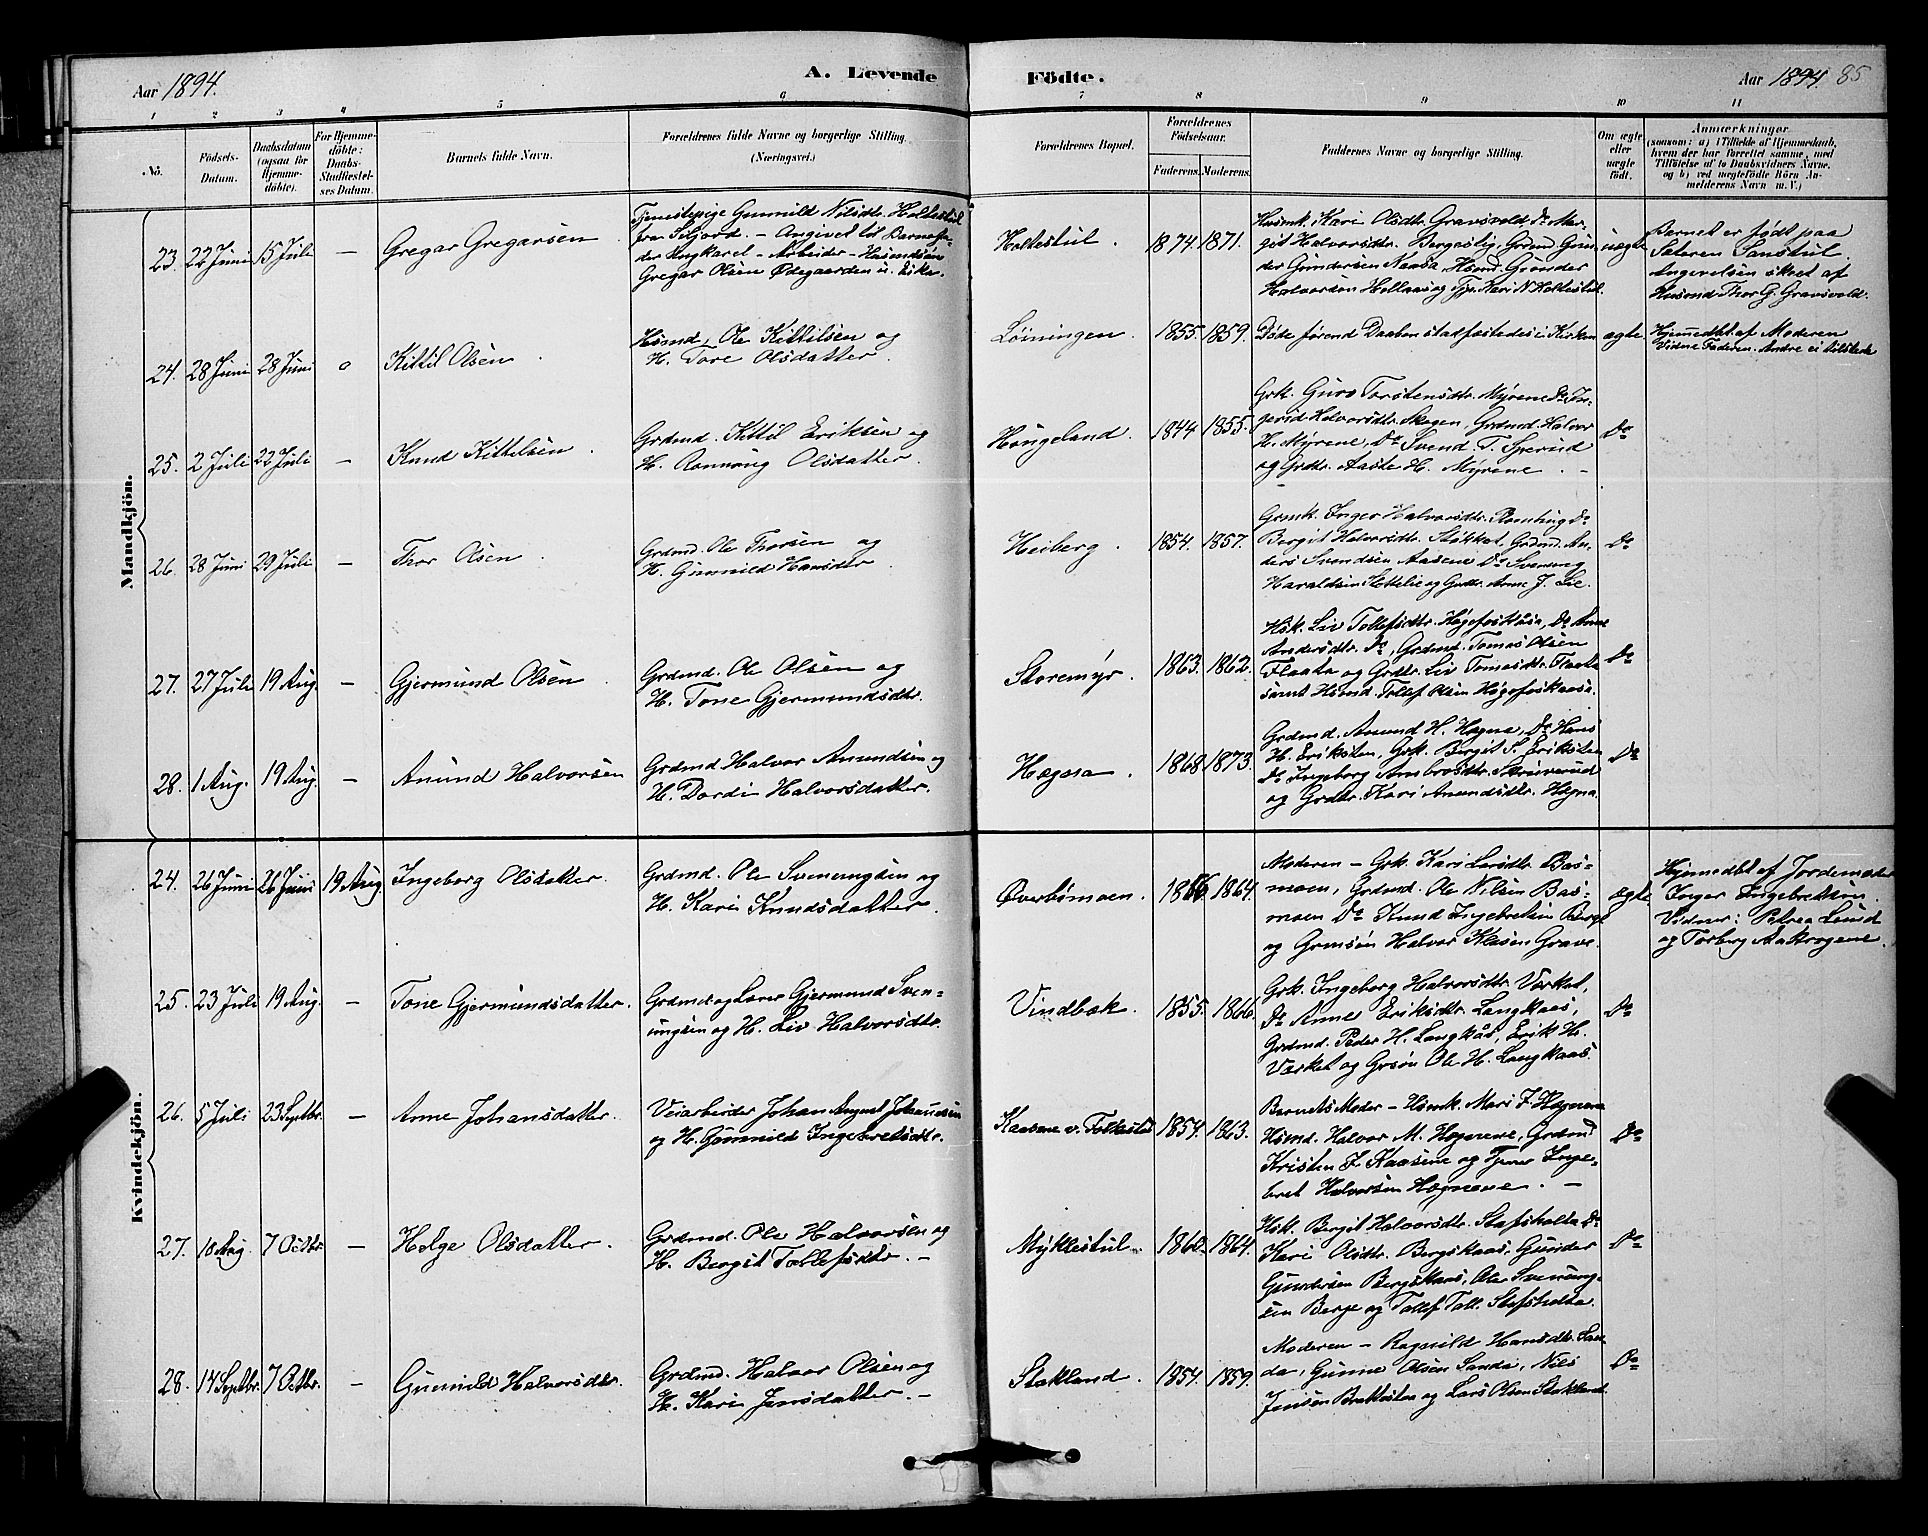 Aar 1894.
A. Levende
Födte.
Aar 1894. 85
1 2 3 4 5 6 7 8 9 10 11
No.
Födsels-
Datum.
Daabsdatum
(ogsaa for
Hjemme-
döbte).
For Hjemme-
döbte:
Daabs-
Stadfæstel-
ses Datum.
Barnets fulde Navn.
Forældrenes fulde Navne og borgerlige Stilling.
(Næringsvei.)
Forældrenes Bopæl.
Forældrenes
Födselsaar.
Faderens. Moderens.
Faddernes Navne og borgerlige Stilling.
Om ægte
eller
uægte
født.
Anmærkninger
(saasom: a) i Tilfælde af Hjemmedaab,
hvem der har forrettet samme, med
Tilføielse af to Daabsvidners Navne,
og b) ved uegtefödte Börn An-
melderens Navn m. V.)
Mandkjön.
23. 22 Juni 15 Juli — Gregar Gregarsen
Tjenestepige Gunnild Nilsdtr. Holtestul
fra Siljord. — Angivet til Barnefa-
der Ungkarel — Arbeider — Husmdsön
Gregar Olsen Ødegaarden i
Holtestul. 1874. 1871.
Husmk. Kari Olsdtr. Gravsvold Do Mar-
git Halvorsdtr. Bergeslig, Grdmd. Gun-
der Gundersen Naasa, Hsmd. Gunder
Halvorsen Hollaas og Tjp. Kari N. Holtestul.
uægte
Barnet er født paa
Sæteren Sanstul.
Angivelsen skeet af
Husmd Thor G. Gravsvold.
24. 28 Juni 28 Juni o Kittil Olsen
Hsmd, Ole Kittilsen og
H. Tore Olsdatter.
Løiningen 1855. 1859.
Døde førend Daaben stadfæstedes i Kirken
ægte
Hjemmedøbt af Moderen
Vidne Faderen. Andre ei tilstede
25. 2 Juli 22 Juli — Knud Kittilsen
Grdmd. Kittil Eriksen og
H. Rønnaug Olsdatter.
Haugeland. 1844 1855.
Grk. Guro Torstensdtr. Myrene Do In-
gerid Halvorsdtr. Skogen, Grdmd. Halvor
H. Myrene, Do Svend T.
og Grdtr. Aaste H. Myrene. —
Do
26. 28 Juni 29 Juli — Thor Olsen
Grdmd. Ole Thorsen og
H. Gunnild Hansdtr.
Heiberg. 1854. 1857.
Grmk. Inger Halvorsdtr. Do
Bergit Halvorsdtr. Stokket, Grdmd. An-
ders Svendsen Aasene Do Svenung
Haraldsen og Grdtr. Anne J. Lie.
Do
27. 27 Juli 19 Aug. — Gjermund Olsen
Grdmd. Ole Olsen og
H. Tone Gjermundsdtr.
Storemyr. 1863. 1862.
Hsk. Liv Tollefsdtr. Høgefoskaasa, Do Anne
Andersdtr. Do, Grdmd. Tomas Olsen
Flaata og Grdtr. Liv Tomasdtr. Flaata
samt Hsmd. Tollef Olsen Høgefoskaasa.
Do
28. 1 Aug. 19 Aug. — Amund Halvorsen
Grdmd Halvor Amundsen og
H. Dordi Halvorsdatter.
Hægna. 1868 1873.
Grdmd. Amund H. Høgna, Do Hans
H. Eriksten, Grk. Bergit S. Eriksten
Do Ingeborg Ambrosdtr. Skruverud
og Grdtr. Kari Amundsdtr. Høgna.
Do
Kvindekjön.
24. 26 Juni 26 Juni 19 Aug. Ingeborg Olsdatter.
Grdmd. Ole Svenungsen og
H. Kari Knudsdatter.
Øverbømoen. 1866 1864.
Moderen — Grk. Kari Larsdtr. Bas-
moen, Grdmd. Ole Nilsen Bas-
moen Do Knud Ingebretsen Berge
og Grmsøn Halvor Klasen Grave.
ægte
Hjemmedøbt af Jordemoder
Inger Ingebretsen.
Vidner: Petrea Lund
og Torberg Aakrogene.
25. 23 Juli 19 Aug. — Tone Gjermundsdatter.
Grdmd. og Lærer Gjermund Sven-
ungsen og H. Liv Halvorsdtr.
Vindbæk. 1855. 1866.
Grk. Ingeborg Halvorsdtr. Værket,
Do Anne Eriksdtr. Langkaas,
Grdmd. Peder H. Langkås, Erik H.
Værket og Grsøn Ole H. Langkaas.
Do
26. 5 Juli 23 Septbr. — Anne Johansdatter.
Veiarbeider Johan August Johansen
og H. Gunnild Ingebretsdtr.
Kaasene v. Follestad 1854. 1863.
Barnets Moder — Hsmk. Mari J. Hægnene
Hsmd. Halvor M. Hægnene, Grdmd
Kristen J. Kaasene og Tjener Inge-
bret Halvorsen Hægnene. —
Do
27. 18 Aug. 7 Octbr. — Helge Olsdatter.
Grdmd. Ole Halvorsen og
H. Bergit Tollefsdtr. —
Myklestul. 1862. 1864.
Hsk. Bergit Halvorsdtr. Stafsholta Do
Kari Olsdtr. Bergskaas, Gunder
Gundersen Bergskaas, Ole Svenung-
sen Berge og Tollef Toll. Stafsholta.
Do
28. 14 Septbr. 7 Octbr. — Gunnild Halvorsdtr.
Grdmd. Halvor Olsen og
H. Kari Jensdatter. —
Stokland. 1854. 1859.
Moderen — Ragnild Hansdtr. San-
da, Gunne Olsen Sanda, Nils
Jensen og Lars Olsen Stokland.
Do